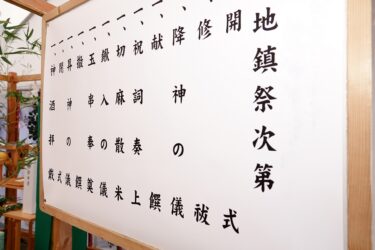 地鎮祭次第
開式
修祓
、降神の儀
、献饌
一、祝詞奏上
一、切麻散米
一、鍬入の儀
一、玉串奉奠
一、撤饌
一、昇神の儀
一、閉式
一、神酒拝戴